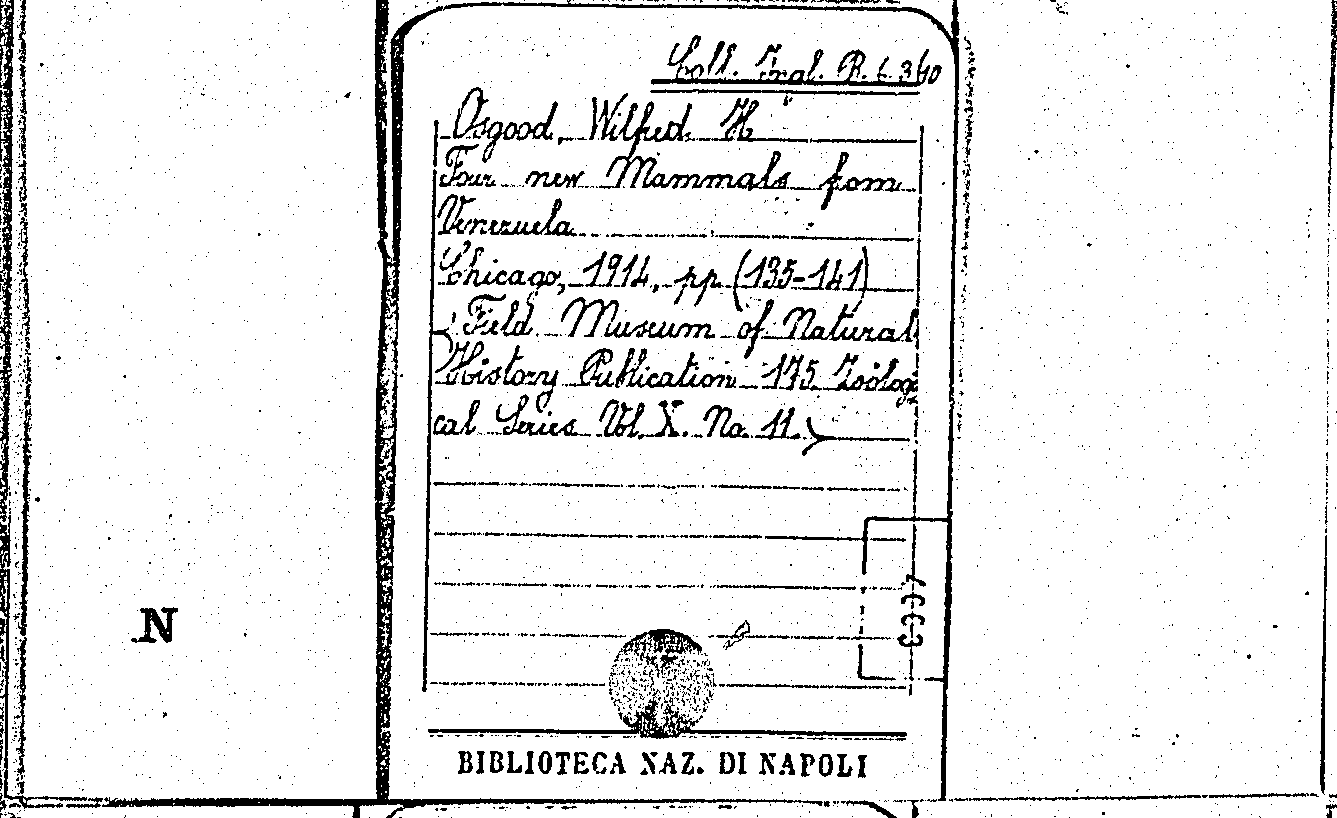 Coll. Ingl. B. 6 340
Osgood, Wilfred. H
Four new Mammals from
Venezuela
Chicago, 1914, pp (135-141)
(Field Museum of Natural
History Publication 175 Zoölogi
cal Series Vol. X. No. 11.)
N
BIBLIOTECA NAZ. DI NAPOLI